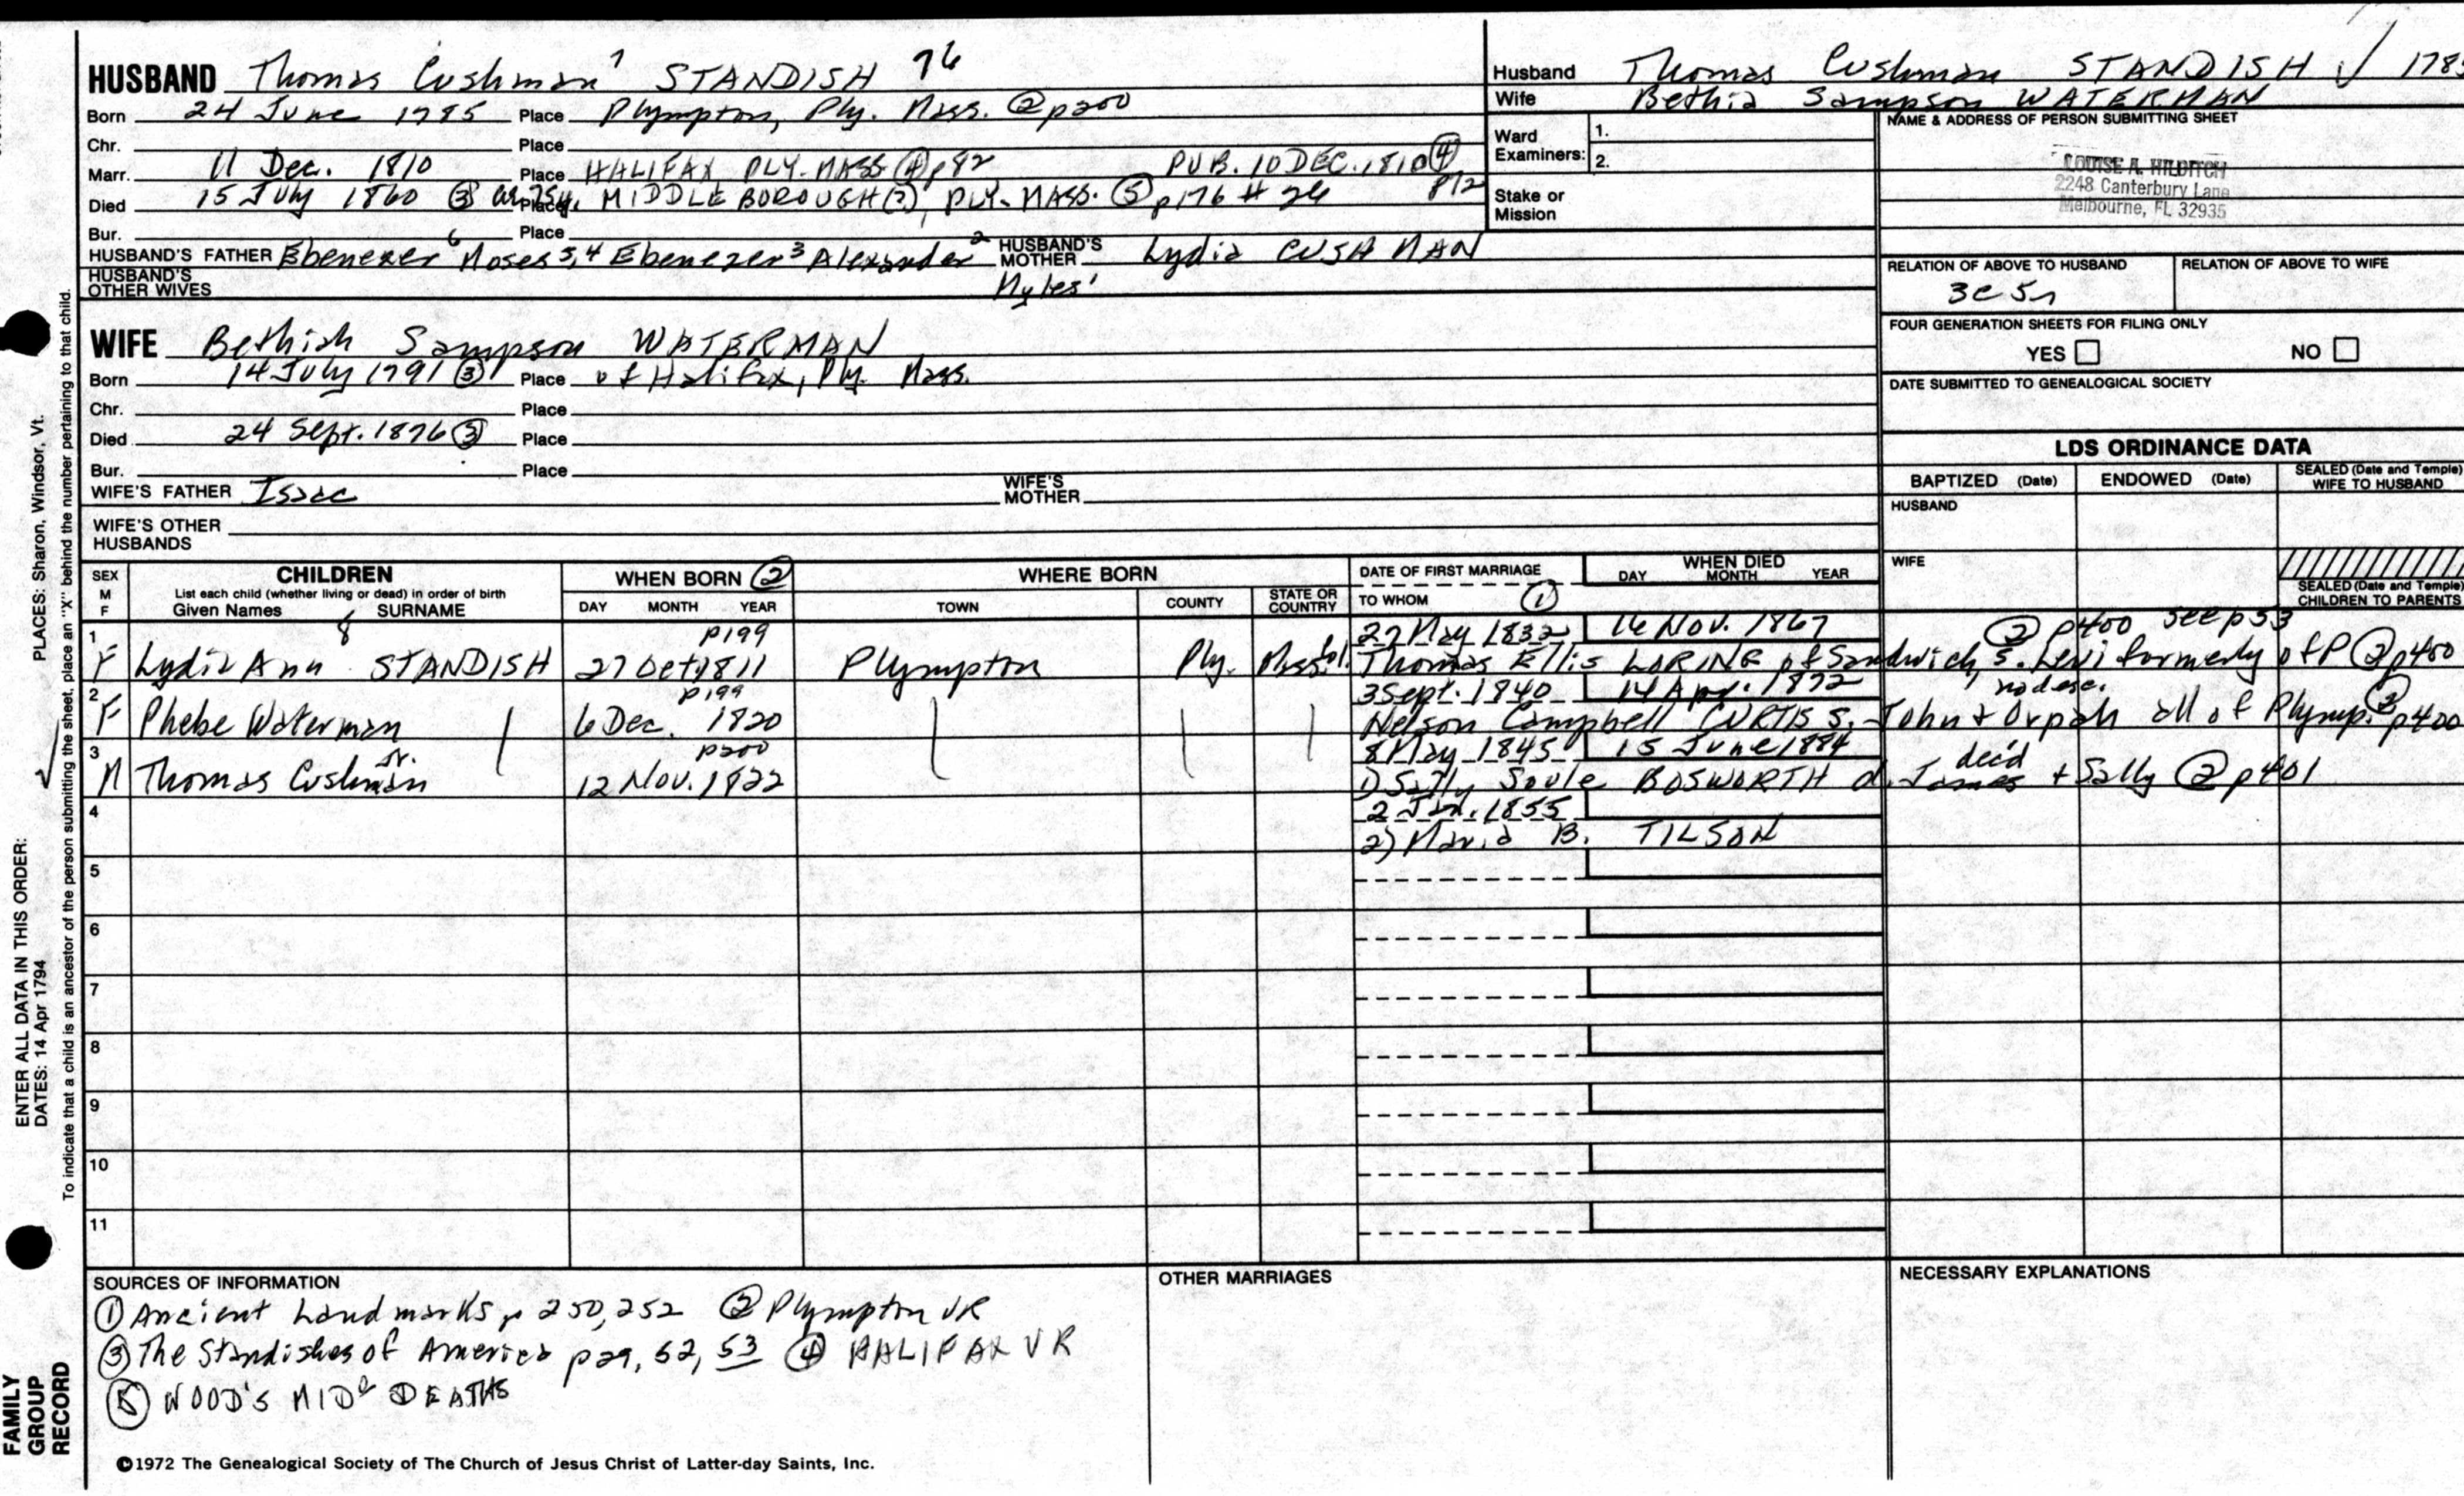 HUSBAND Thomas Cushman 7 STANDISH 76
Born 24 June 1785 Place Plympton, Ply. Mass. ② p200
Chr. Place
Marr. 11 Dec. 1810 Place HALIFAX PLY. MASS ④ p82 PUB. 10 DEC. 1810 ④ p12
Died 15 July 1860 ③ Place MIDDLEBOROUGH (?), PLY. MASS. ⑤ p176 # 26
Bur. Place
HUSBAND'S FATHER Ebenezer 6 Moses 5,4 Ebenezer 3 Alexander 2 Myles 1 HUSBAND'S MOTHER Lydia CUSHMAN
HUSBAND'S OTHER WIVES
WIFE Bethiah Sampson WATERMAN
Born 14 July 1791 ③ Place of Halifax, Ply. Mass.
Chr. Place
Died 24 Sept. 1876 ③ Place
Bur. Place
WIFE'S FATHER Isaac WIFE'S MOTHER
WIFE'S OTHER HUSBANDS
Husband Thomas Cushman STANDISH √ 178
Wife Bethia Sampson WATERMAN
Ward Examiners: 1.
2.
Stake or Mission
NAME & ADDRESS OF PERSON SUBMITTING SHEET
LOUISE A. HILDITCH
2248 Canterbury Lane
Melbourne, FL 32935
RELATION OF ABOVE TO HUSBAND RELATION OF ABOVE TO WIFE
3c 5r
FOUR GENERATION SHEETS FOR FILING ONLY
YES NO
DATE SUBMITTED TO GENEALOGICAL SOCIETY
LDS ORDINANCE DATA
BAPTIZED (Date) ENDOWED (Date) SEALED (Date and Temple) WIFE TO HUSBAND
HUSBAND
WIFE
SEALED (Date and Temple) CHILDREN TO PARENTS
SEX M F CHILDREN WHEN BORN ② WHERE BORN DATE OF FIRST MARRIAGE WHEN DIED
List each child (whether living or dead) in order of birth
Given Names SURNAME DAY MONTH YEAR TOWN COUNTY STATE OR COUNTRY TO WHOM ① DAY MONTH YEAR
8 p199 27 May 1832 16 Nov. 1867 ② p400 see p53
1 F Lydia Ann STANDISH 27 Oct 1811 Plympton Ply. Mass. Thomas Ellis LORING of Sandwich, s. Levi formerly of P ② p400
p199 3 Sept. 1840 14 Apr. 1872 no desc.
2 F Phebe Waterman 6 Dec. 1820 Nelson Campbell CURTIS s. John + Orpah all of Plymp. ② p400
Jr. p200 8 May 1845 15 June 1884 dec'd
3 M Thomas Cushman 12 Nov. 1822 1) Sally Soule BOSWORTH d. James + Sally ② p401
2 Jan. 1855
4 2) Maria B. TILSON
5
6
7
8
9
10
11
SOURCES OF INFORMATION
① Ancient Landmarks p 250, 252 ② Plympton VR
③ The Standishes of America p29, 52, 53 ④ HALIFAX VR
⑤ WOOD'S MIDD DEATHS
OTHER MARRIAGES
NECESSARY EXPLANATIONS
©1972 The Genealogical Society of The Church of Jesus Christ of Latter-day Saints, Inc.
PLACES: Sharon, Windsor, Vt.
ENTER ALL DATA IN THIS ORDER:
DATES: 14 Apr 1794
To indicate that a child is an ancestor of the person submitting the sheet, place an "X" behind the number pertaining to that child.
FAMILY GROUP RECORD